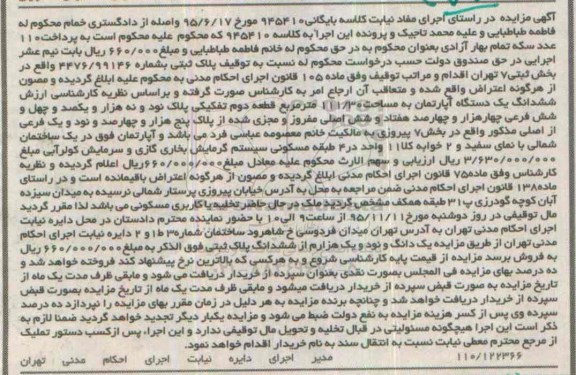 آگهی مزایده در راستای اجرای مفاد نیابت کلاسه بایگانی ۹۴۵۴۱۰ مورخ ۹۵/۶/۱۷ واصله از دادگستری خمام محکوم له
فاطمه طباطبایی و علیه محمد تاجیک و پرونده این اجرا به کلاسه ۹۴۵۴۱۰ که محکوم علیه محکوم است به پرداخت ۱۱۰
عدد سکه تمام بهار آزادی بعنوان محکوم به در حق محکوم له خانم فاطمه طباطبایی و مبلغ ۶۶۰/۰۰۰ ریال بابت نیم عشر
اجرایی در حق صندوق دولت حسب درخواست محکوم له نسبت به توقیف پلاک ثبتی بشماره ۴۴۷۶/۹۹۱۴۶ واقع در
بخش ثبتی ۷ تهران اقدام و مراتب توقیف وفق ماده ۱۰۵ قانون اجرای احکام مدنی به محکوم علیه ابلاغ گردیده و مصون
از هرگونه اعتراض واقع شده و متعاقب آن ارجاع امر به کارشناس صورت گرفته و براساس نظریه کارشناسی ارزش
ششدانگ یک دستگاه آپارتمان به مساحت ۱۱۱/۳۰ مترمربع قطعه دوم تفکیکی پلاک نود و نه هزار و یکصد و چهل و
شش فرعی چهارهزار و چهارصد هفتاد و شش اصلی مفروز و مجزی شده از پلاک پنج هزار و چهارصد و نود و یک فرعی
از اصلی مذکور واقع در بخش ۷ پیروزی به مالکیت خانم معصومه عباسی فرد می باشد و آپارتمان فوق در یک ساختمان
شمالی با نمای سفید و ۲ خوابه کلا ۱۱ واحد در ۴ طبقه مسکونی سیستم گرمایش بخاری گازی و سرمایش کولرآبی مبلغ
۳/۶۳۰/۰۰۰/۰۰۰ ریال ارزیابی و سهم الارث محکوم علیه معادل مبلغ ۶۶۰/۰۰۰/۰۰۰ ریال اعلام گردیده و نظریه
کارشناس وفق ماده ۷۵ قانون اجرای احکام مدنی ابلاغ گردیده و مصون از هرگونه اعتراض باقیمانده است و در راستای
ماده ۱۳۸ قانون اجرای احکام مدنی ضمن مراجعه به محل به آدرس خیابان پیروزی پرستار شمالی نرسیده به میدان سیزده
آبان کوچه گودرزی پ ۳۱ طبقه همکف مشخص گردید ملک در حال حاضر تخلیه با کاربری مسکونی می باشد لذا مقرر گردید
مال توقیفی در روز دوشنبه مورخ ۹۵/۱۱/۱۱ از ساعت ۹ الی ۱۰ با حضور نماینده محترم دادستان در محل دایره نیابت
اجرای احکام مدنی تهران به آدرس تهران میدان فردوسی خ شاهرود ساختمان شماره ۳ ط ۱ و ۲ دایره نیابت اجرای احکام
مدنی تهران از طریق مزایده یک دانگ و نود و یک هزارم از ششدانگ پلاک ثبتی فوق الذکر به مبلغ ۶۶۰/۰۰۰/۰۰۰ ریال
به فروش برسد مزایده از قیمت پایه کارشناسی شروع و به هرکسی که بالاترین نرخ پیشنهاد کند فروخته خواهد شد و
ده درصد بهای مزایده فی المجلس بصورت نقدی بعنوان سپرده از خریدار دریافت می شود و مابقی ظرف مدت یک ماه از
تاریخ مزایده به صورت قبض سپرده از خریدار دریافت میشود و مابقی ظرف مدت یک ماه از تاریخ مزایده بصورت قبض
سپرده از خریدار دریافت خواهد شد و چنانچه برنده مزایده به هر دلیل در زمان مقرر بهای مزایده را نپردازد ده درصد
سپرده وی پس از کسر هزینه مزایده به نفع دولت ضبط می شود و مزایده یکبار دیگر تجدید خواهد گردید ضمنا لازم به
ذکر است این اجرا هیچگونه مسئولیتی در قبال تخلیه و تحویل مال توقیفی ندارد و این اجرا، پس ازکسب دستور تملیک
از مرجع محترم معطی نیابت نسبت به انتقال سند به نام خریدار اقدام خواهد نمود.
۱۱۰/۱۲۲۳۶۶ مدیر اجرای دایره نیابت اجرای احکام مدنی تهران